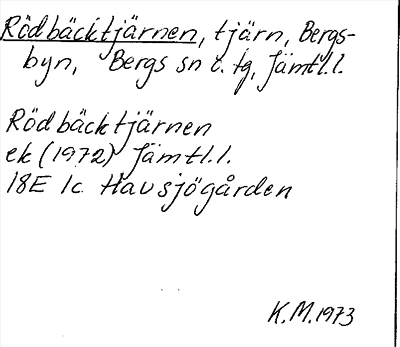 Rödbäcktjärnen, tjärn, Bergs-
byn, Bergs sn o. tg, Jämtl.l.
Rödbäcktjärnen
ek (1972) Jämtl.l.
18E 1c Havsjögården
K.M. 1973